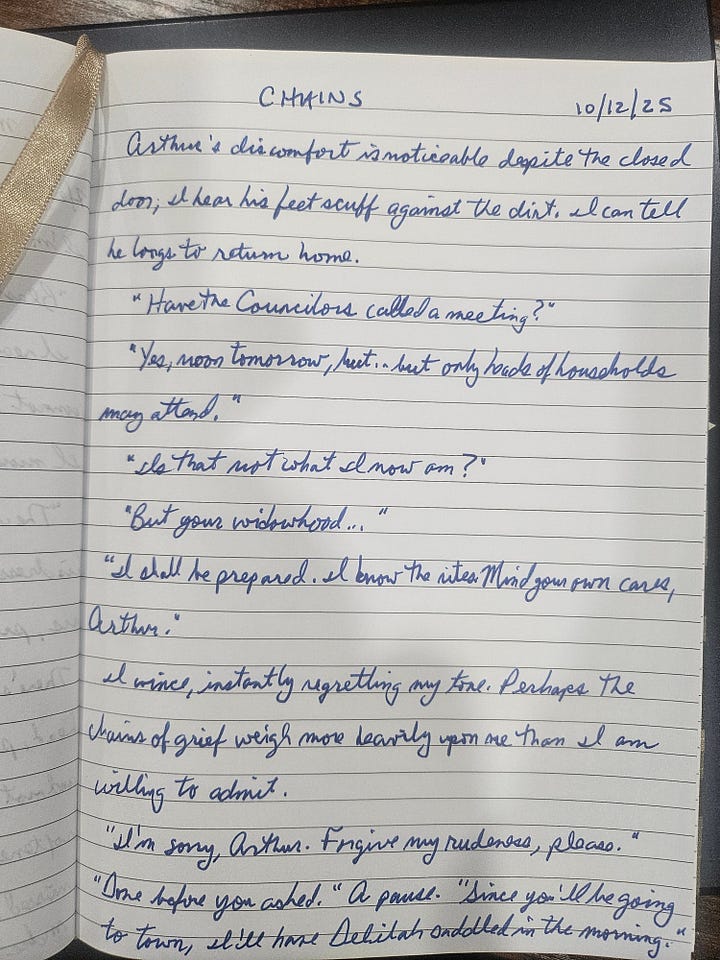 CHAINS 10/12/25
Arthur's discomfort is noticeable despite the closed
door; I hear his feet scuff against the dirt. I can tell
he longs to return home.
"Have the Councilors called a meeting?"
"Yes, noon tomorrow, but... but only heads of households
may attend."
"Is that not what I now am?"
"But your widowhood..."
"I shall be prepared. I know the rites. Mind your own cares,
Arthur."
I wince, instantly regretting my tone. Perhaps the
chains of grief weigh more heavily upon me than I am
willing to admit.
"I'm sorry, Arthur. Forgive my rudeness, please."
"Done before you asked." A pause. "Since you'll be going
to town, I'll have Delilah saddled in the morning."